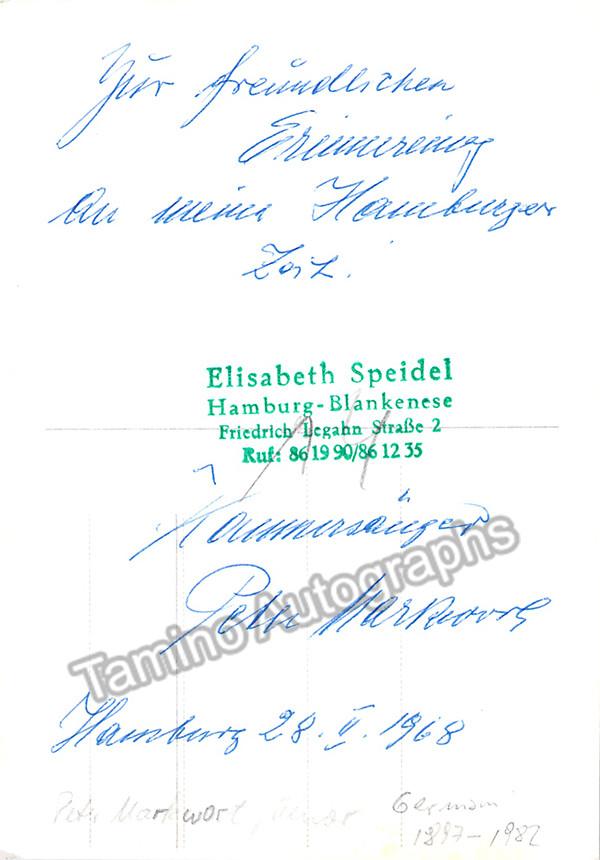 Zur freundlichen
Erinnerung
an meine Hamburger
Zeit.
Elisabeth Speidel
Hamburg-Blankenese
Friedrich Legahn Straße 2
Ruf: 86 19 90/86 12 35
14
Kammersänger
Peter Markwort
Tamino Autographs
Hamburg 28. II. 1968
Peter Markwort, tenor German
1897-1982